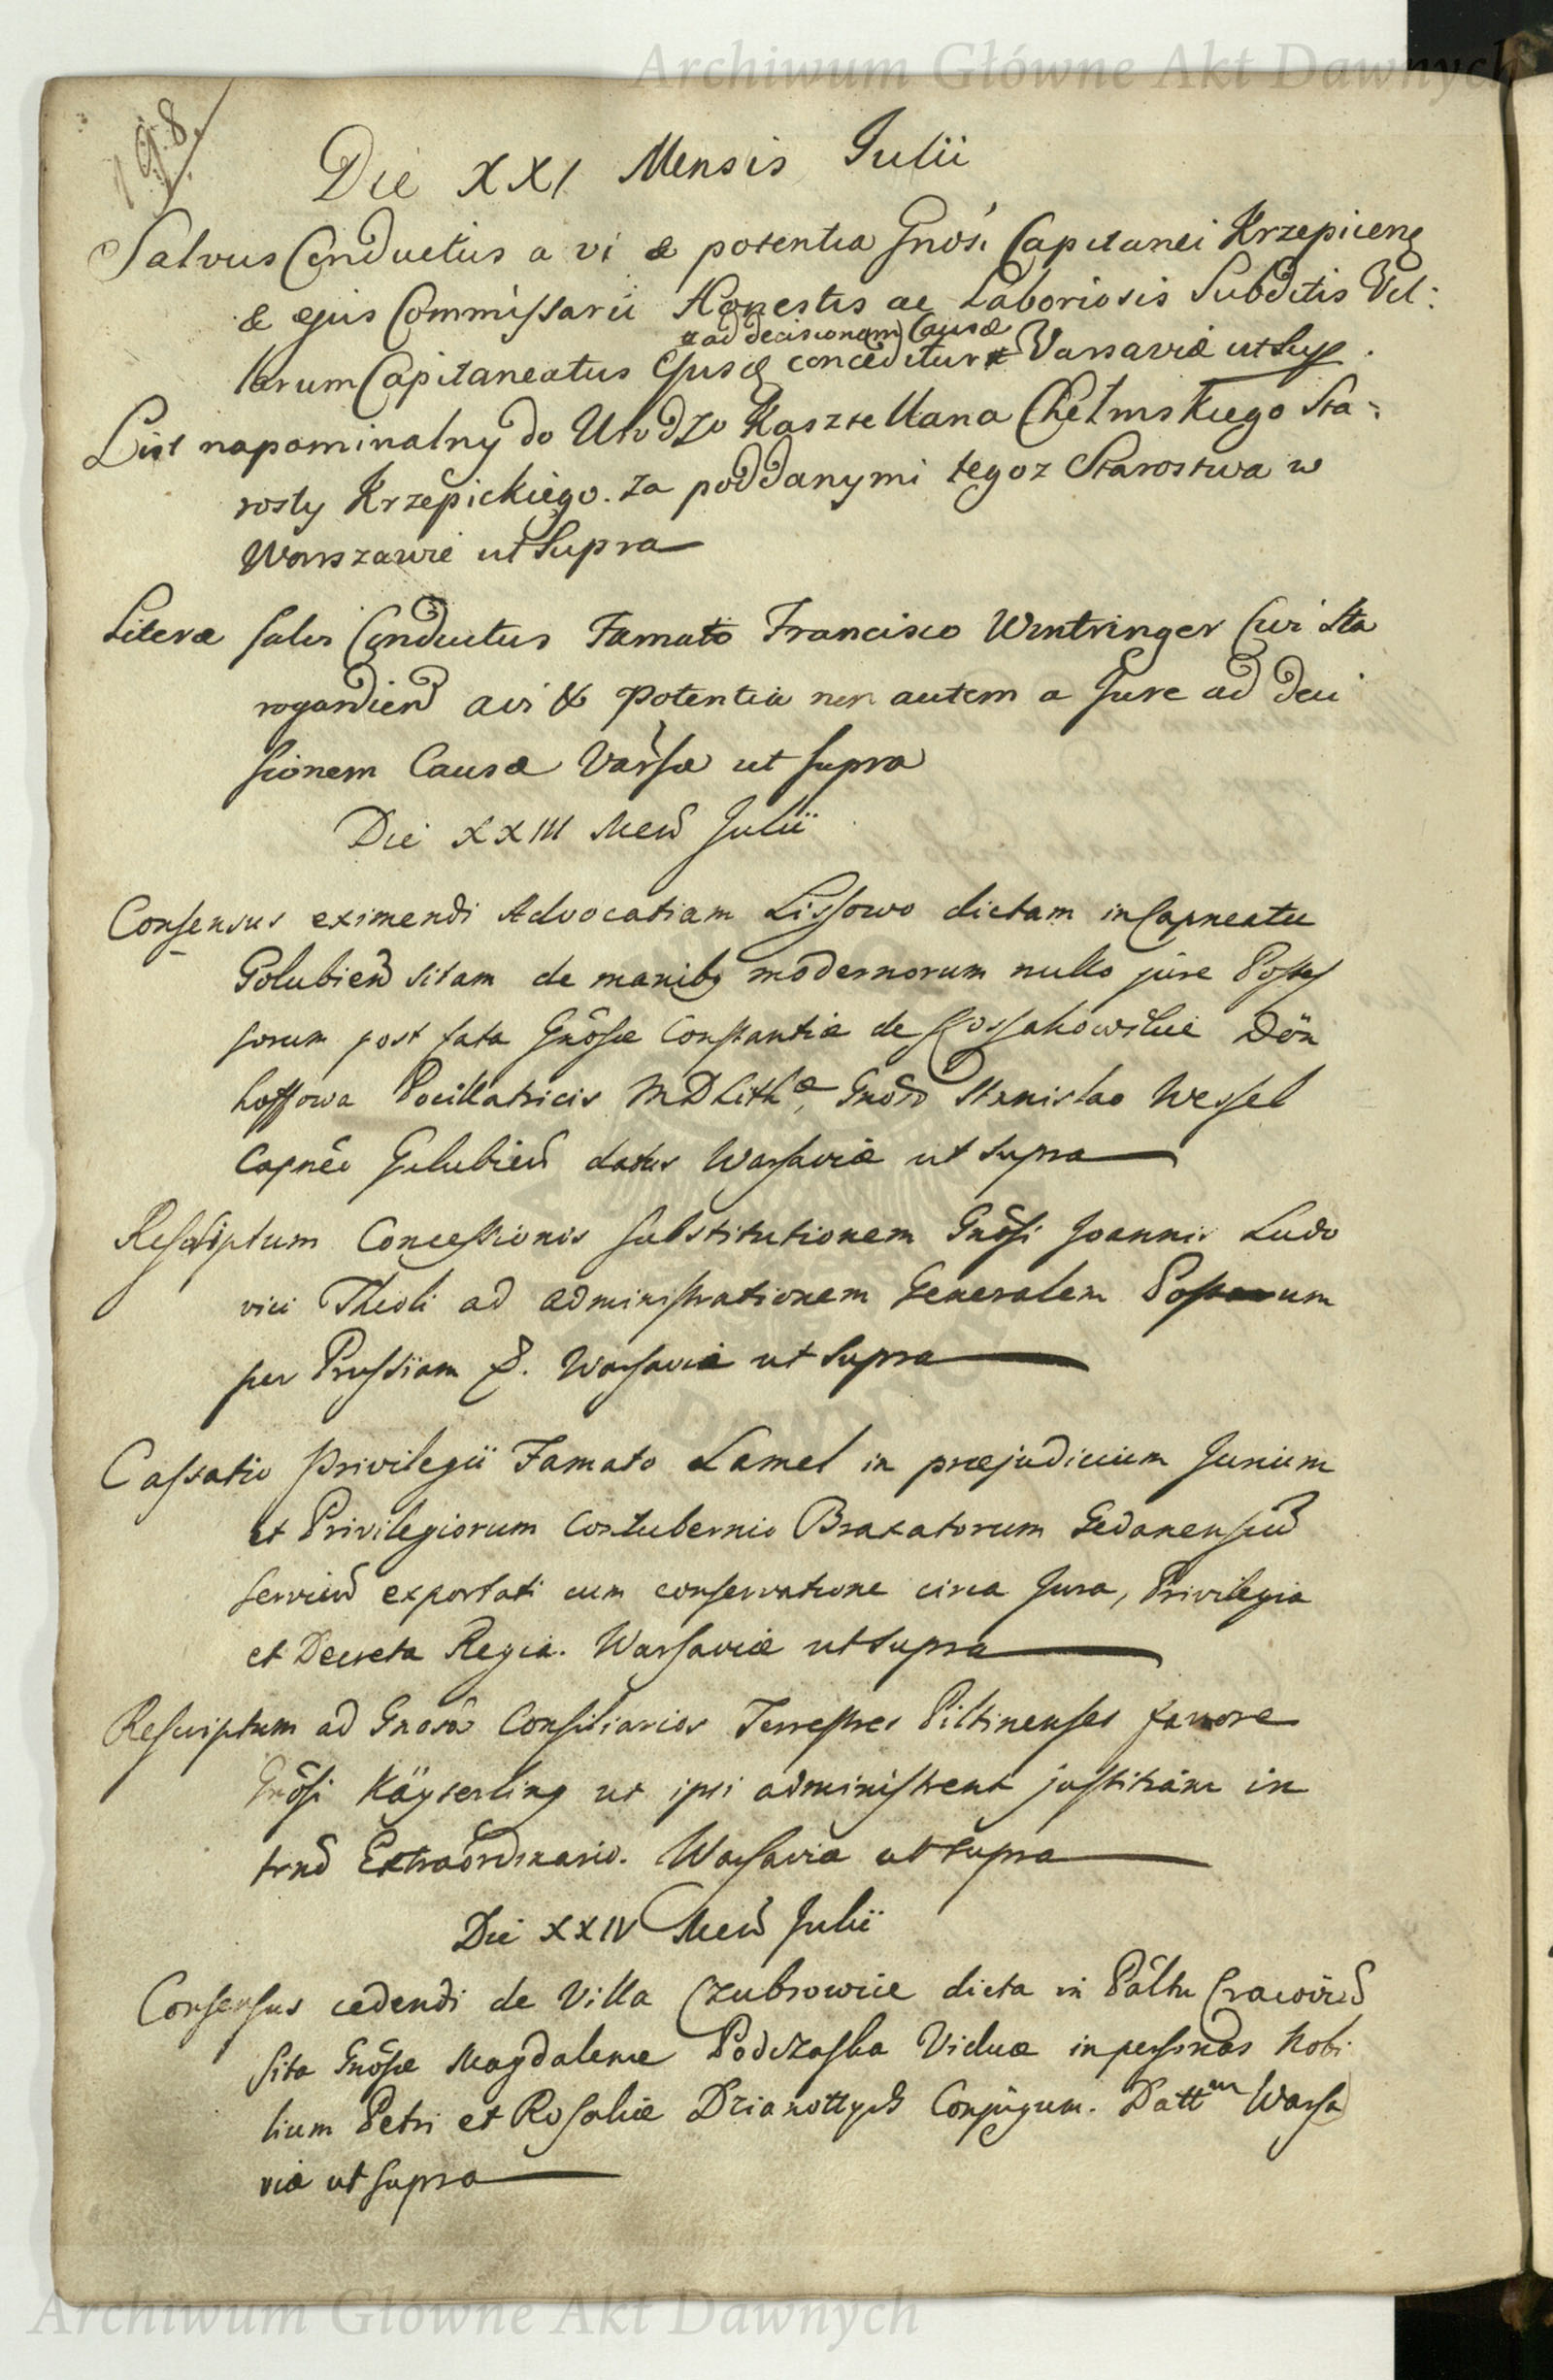 Archiwum Główne Akt Dawnych
198.
Die XXI Mensis Julii
Salvus Conductus a vi & potentia Gnosi Capitanei Krzepicens
& ejus Commissarii Honestis ac Laboriosis Subditis Vil:
ad decisionem Causæ
larum Capitaneatus Ejusd conceditur Varsaviæ ut Sup.
List napominalny do Urodzo Kasztellana Chełmskiego Sta:
rosty Krzepickiego. za poddanymi tegoz Starostwa w
Warszawie ut Supra
Literæ salvi Conductus Famato Francisco Wintringer Civi Sta
rogardien a vi & potentia non autem a Jure ad deci
sionem Causæ Varsæ ut supra
Die XXIII Men Julii
Consensus eximendi Advocatiam Lissowo dictam in Capneatu
Golubien sitam de manibq modernorum nullo jure Posses
sorum post fata Gnosæ Constantiæ de Kossakowskie Dön
hoffowa Pocillatricis MDLithæ, Gnoso Stanislao Wessel
Capneo Golubien datus Warsaviæ ut supra
Rescriptum Concessionis substitutionem Gnosi Joannis Ludo
vici Theoli ad administrationem Generalem Postarum
per Prussiam &. Warsaviæ ut supra
Cassatio Privilegii Famato Lamel in præjudicium Jurium
et Privilegiorum Contubernio Braxatorum Gedanensium
servien exportati cum conservatione circa Jura, Privilegia
et Decreta Regia. Warsaviæ ut supra
Rescriptum ad Gnosos Consiliarios Terrestres Piltinenses favore
Gnosi Käyserling ut ipsi administrent justitiam in
trno Extraordinario. Warsaviæ ut supra
Die XXIV Men Julii
Consensus cedendi de Villa Czubrowice dicta in Palttu Cracovien
sita Gnosæ Magdalenæ Podczaska Viduæ in personas Nobi
lium Petri et Rosaliæ Dzianottych Conjugum. Dattm Warsa
viæ ut supra
Archiwum Główne Akt Dawnych